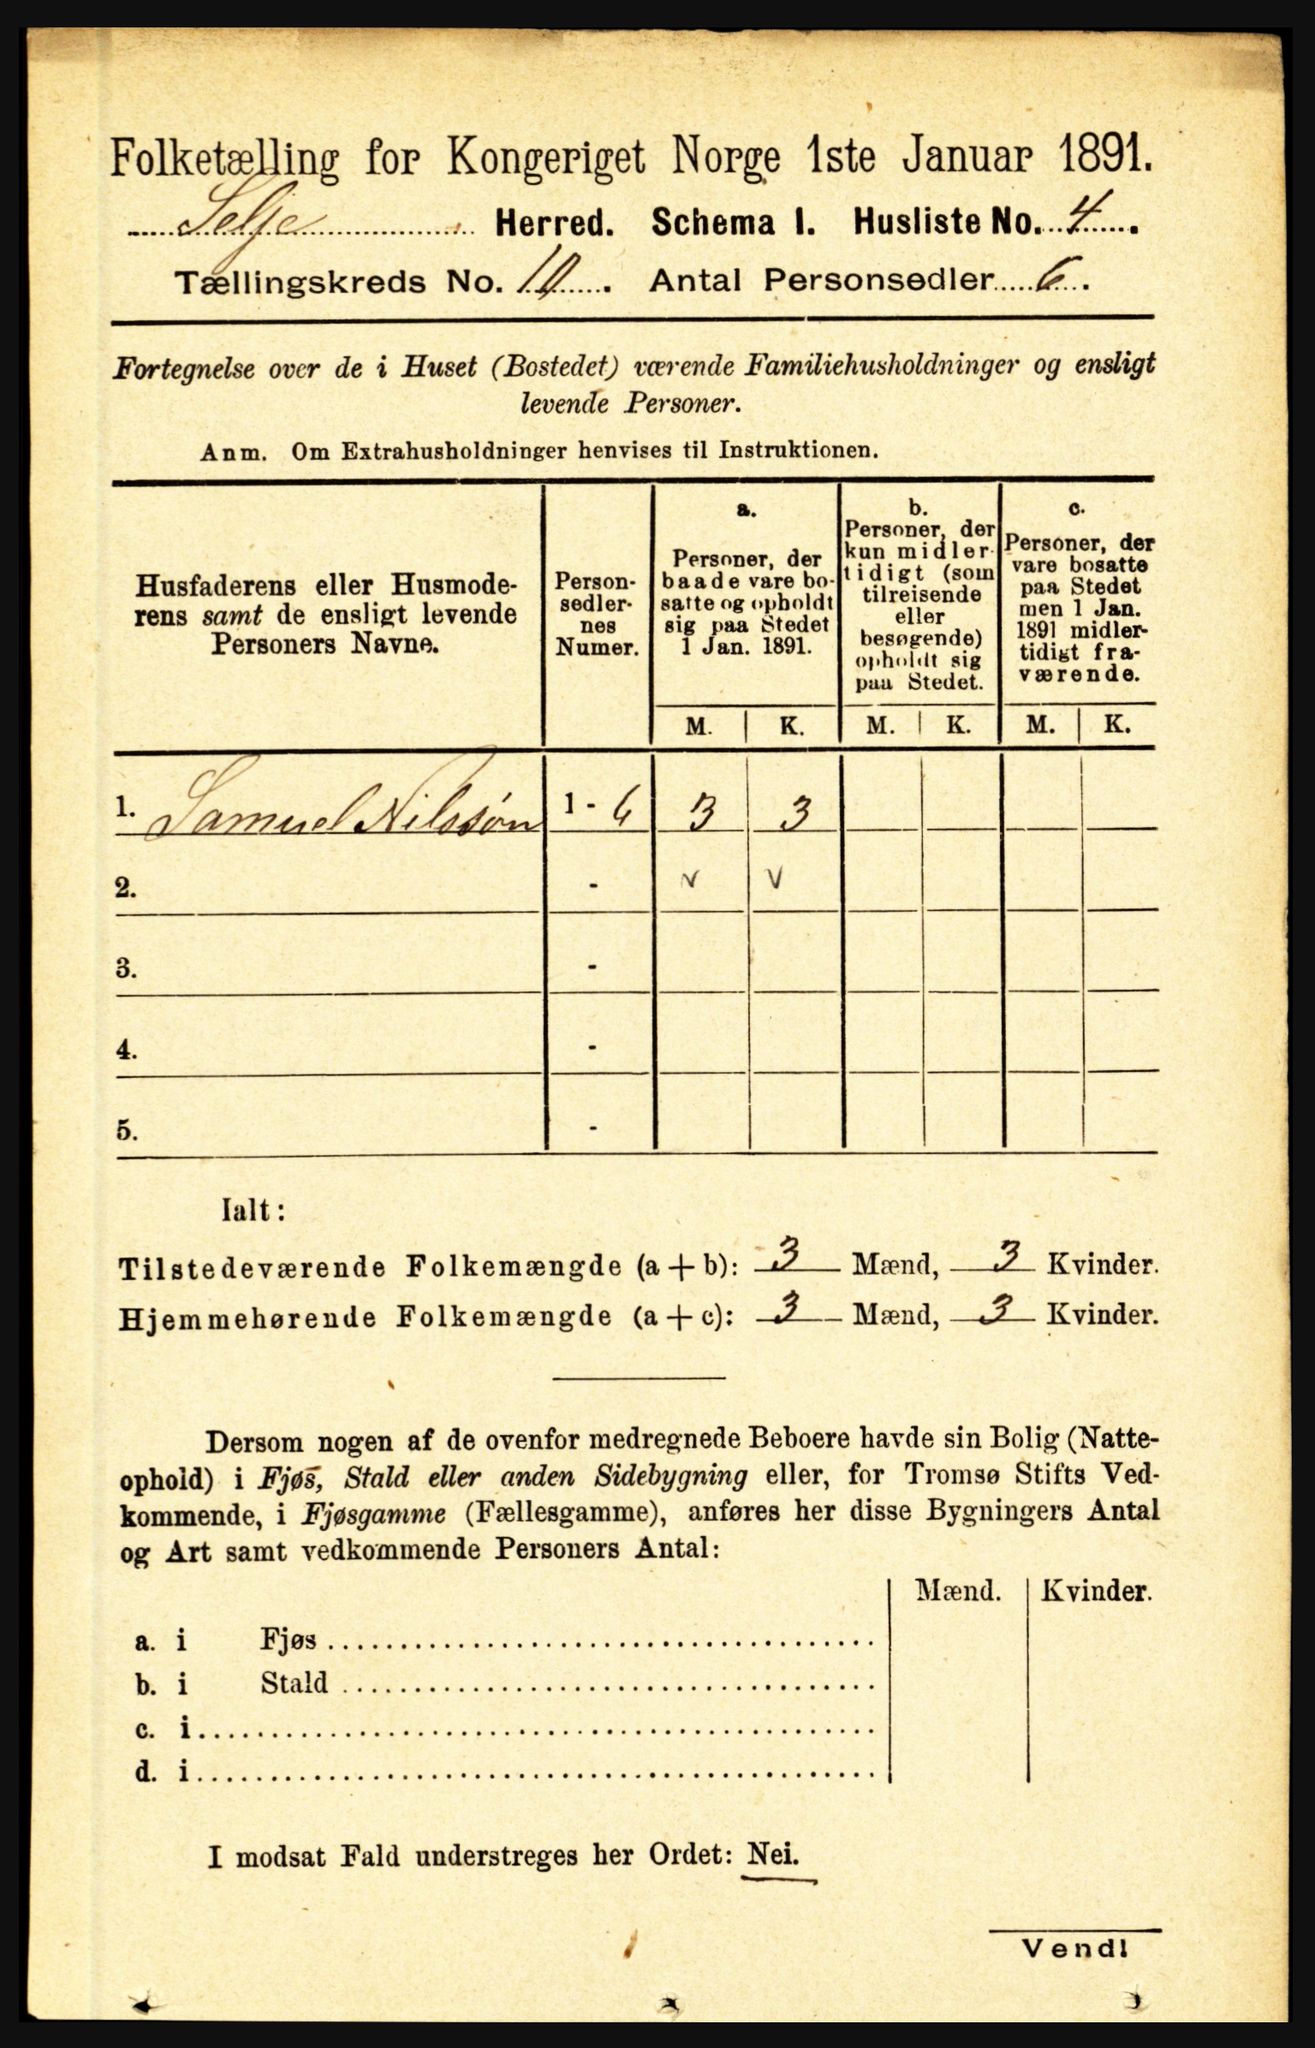 Folketælling for Kongeriget Norge 1ste Januar 1891.
Selje Herred. Schema I. Husliste No. 4.
Tællingskreds No. 10. Antal Personsedler 6.
Fortegnelse over de i Huset (Bostedet) værende Familiehusholdninger og ensligt
levende Personer.
Anm. Om Extrahusholdninger henvises til Instruktionen.
Husfaderens eller Husmode-
rens samt de ensligt levende
Personers Navne.
Person-
sedler-
nes
Numer.
a.
Personer, der
baade vare bo-
satte og opholdt
sig paa Stedet
1 Jan. 1891.
b.
Personer, der
kun midler-
tidigt (som
tilreisende
eller
besøgende)
opholdt sig
paa Stedet.
c.
Personer, der
vare bosatte
paa Stedet
men 1 Jan.
1891 midler-
tidigt fra-
værende.
M. K. M. K. M. K.
1. Samuel Nilssøn 1 - 6 3 3
2. - v v
3. -
4. -
5. -
Ialt:
Tilstedeværende Folkemængde (a + b): 3 Mænd, 3 Kvinder.
Hjemmehørende Folkemængde (a + c): 3 Mænd, 3 Kvinder.
Dersom nogen af de ovenfor medregnede Beboere havde sin Bolig (Natte-
ophold) i Fjøs, Stald eller anden Sidebygning eller, for Tromsø Stifts Ved-
kommende, i Fjøsgamme (Fællesgamme), anføres her disse Bygningers Antal
og Art samt vedkommende Personers Antal:
Mænd. Kvinder.
a. i Fjøs
b. i Stald
c. i
d. i
I modsat Fald understreges her Ordet: Nei.
Vend!